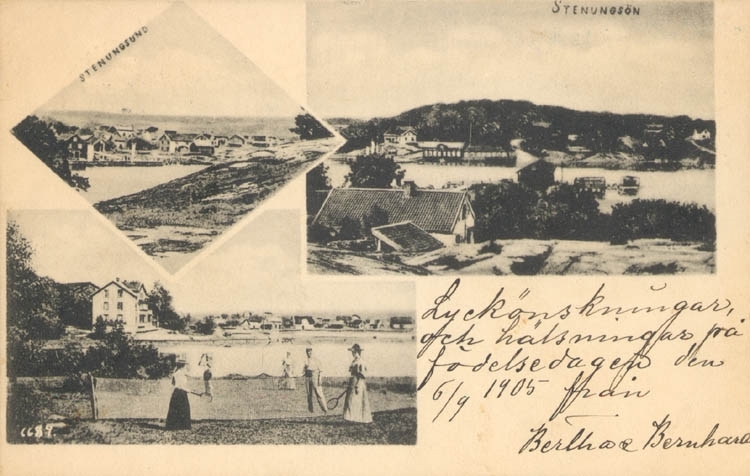 STENUNGSUND
STENUNGSÖN
Lyckönskningar,
och hälsningar på
födelsedagen den
6/9 1905 från
Bertha & Bernhard